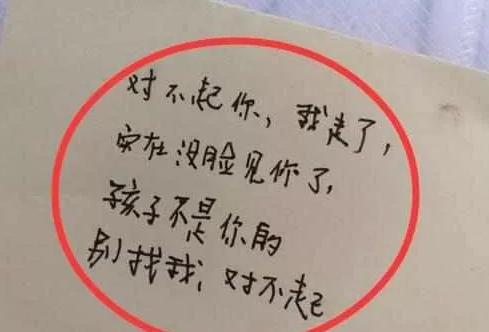 对不起你，我走了，
实在没脸见你了，
孩子不是你的
别找我，对不起